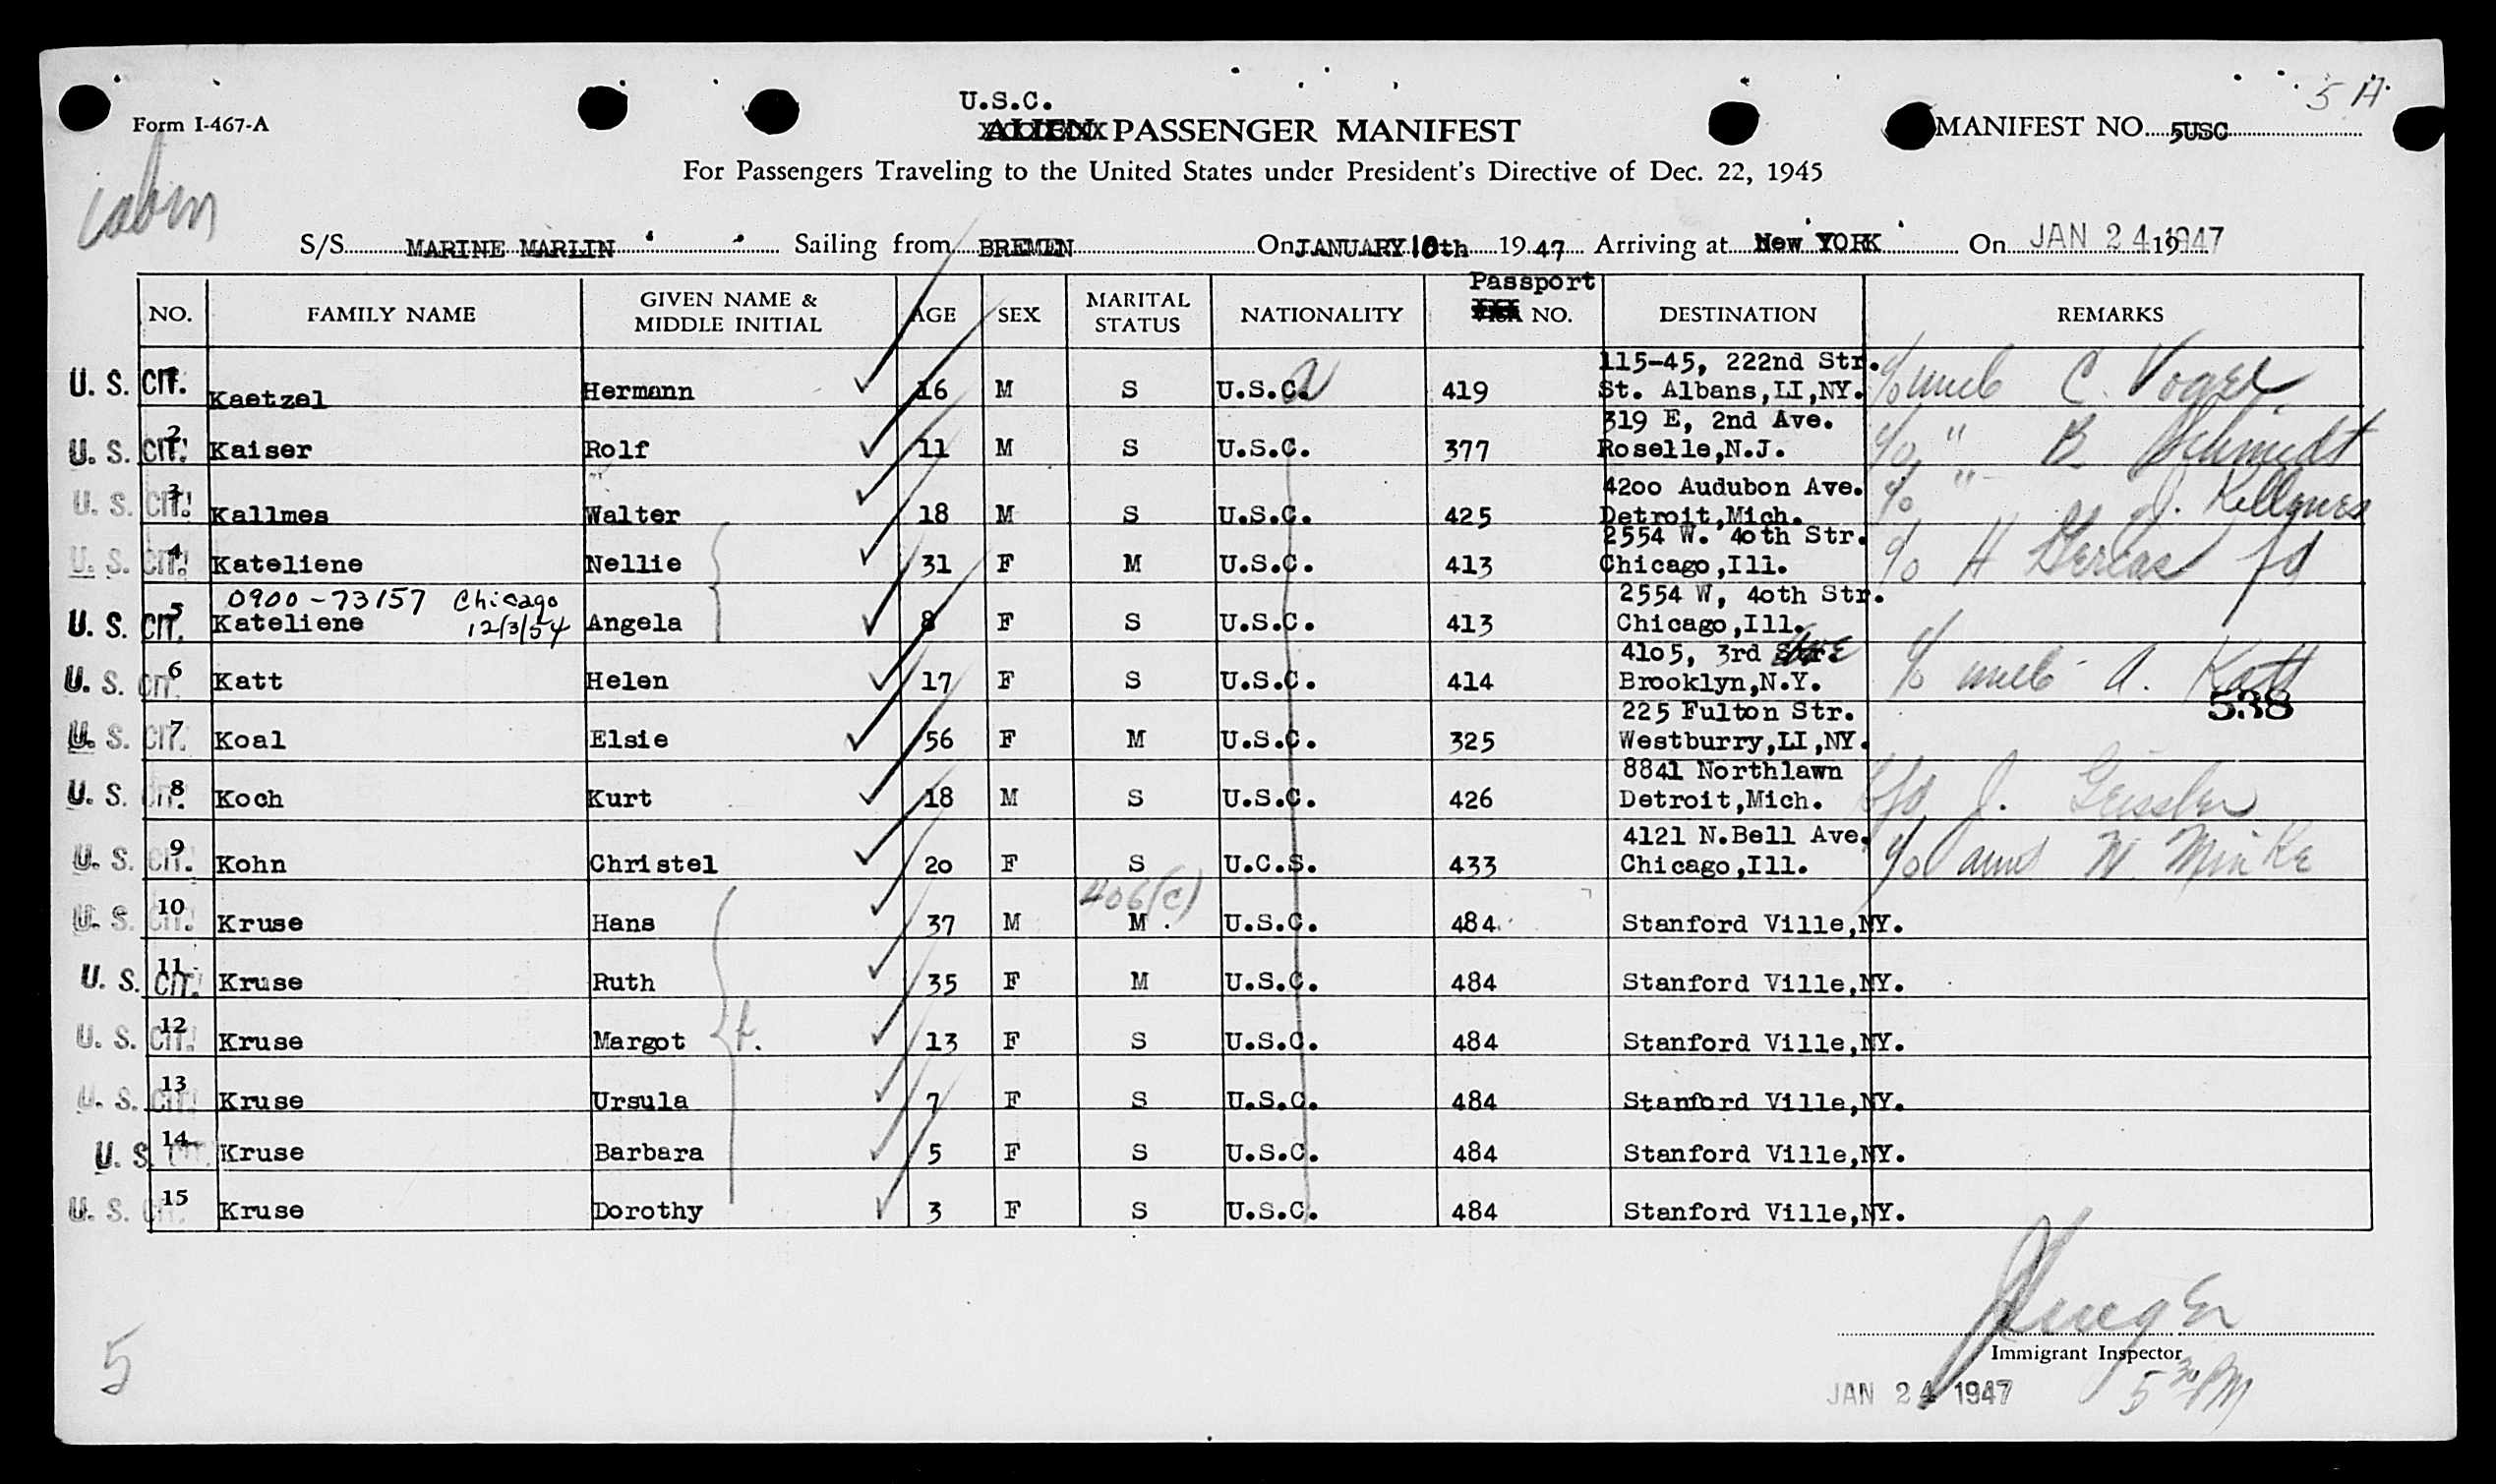 5 A
U.S.C.
Form I-467-A
ALIEN PASSENGER MANIFEST
MANIFEST NO. 5USC
For Passengers Traveling to the United States under President's Directive of Dec. 22, 1945
cabin
S/S MARINE MARLIN Sailing from BREMEN On JANUARY 10th 19 47 Arriving at New YORK On JAN 24 1947
Passport
NO. FAMILY NAME GIVEN NAME & MIDDLE INITIAL AGE SEX MARITAL STATUS NATIONALITY VISA NO. DESTINATION REMARKS
115-45, 222nd Str.
U. S. CIT. Kaetzel Hermann 16 M S U.S.C. 419 St. Albans,LI,NY. c/o uncle C. Vogel
319 E, 2nd Ave.
U. S. CIT. 2 Kaiser Rolf 11 M S U.S.C. 377 Roselle,N.J. c/o " B Schmidt
4200 Audubon Ave.
U. S. CIT. 3 Kallmes Walter 18 M S U.S.C. 425 Detroit,Mich. c/o " J. Kellmes
2554 W. 40th Str.
U. S. CIT. 4 Kateliene Nellie 31 F M U.S.C. 413 Chicago,Ill. c/o H
0900-73157 Chicago 2554 W, 40th Str.
U. S. CIT. 5 Kateliene 12/3/54 Angela 8 F S U.S.C. 413 Chicago,Ill.
4105, 3rd Str. Ave
U. S. CIT. 6 Katt Helen 17 F S U.S.C. 414 Brooklyn,N.Y. c/o uncle A. Katt
538
225 Fulton Str.
U. S. CIT. 7 Koal Elsie 56 F M U.S.C. 325 Westburry,LI,NY.
8841 Northlawn
U. S. CIT. 8 Koch Kurt 18 M S U.S.C. 426 Detroit,Mich. c/o J. Geissler
4121 N.Bell Ave.
U. S. CIT. 9 Kohn Christel 20 F S U.C.S. 433 Chicago,Ill. c/o aunt W. Minke
406(c)
U. S. CIT. 10 Kruse Hans 37 M M U.S.C. 484 Stanford Ville,NY.
U. S. CIT. 11 Kruse Ruth 35 F M U.S.C. 484 Stanford Ville,NY.
U. S. CIT. 12 Kruse Margot f. 13 F S U.S.C. 484 Stanford Ville,NY.
U. S. CIT. 13 Kruse Ursula 7 F S U.S.C. 484 Stanford Ville,NY.
U. S. CIT. 14 Kruse Barbara 5 F S U.S.C. 484 Stanford Ville,NY.
U. S. CIT. 15 Kruse Dorothy 3 F S U.S.C. 484 Stanford Ville,NY.
Immigrant Inspector
5
JAN 24 1947 5 30 PM